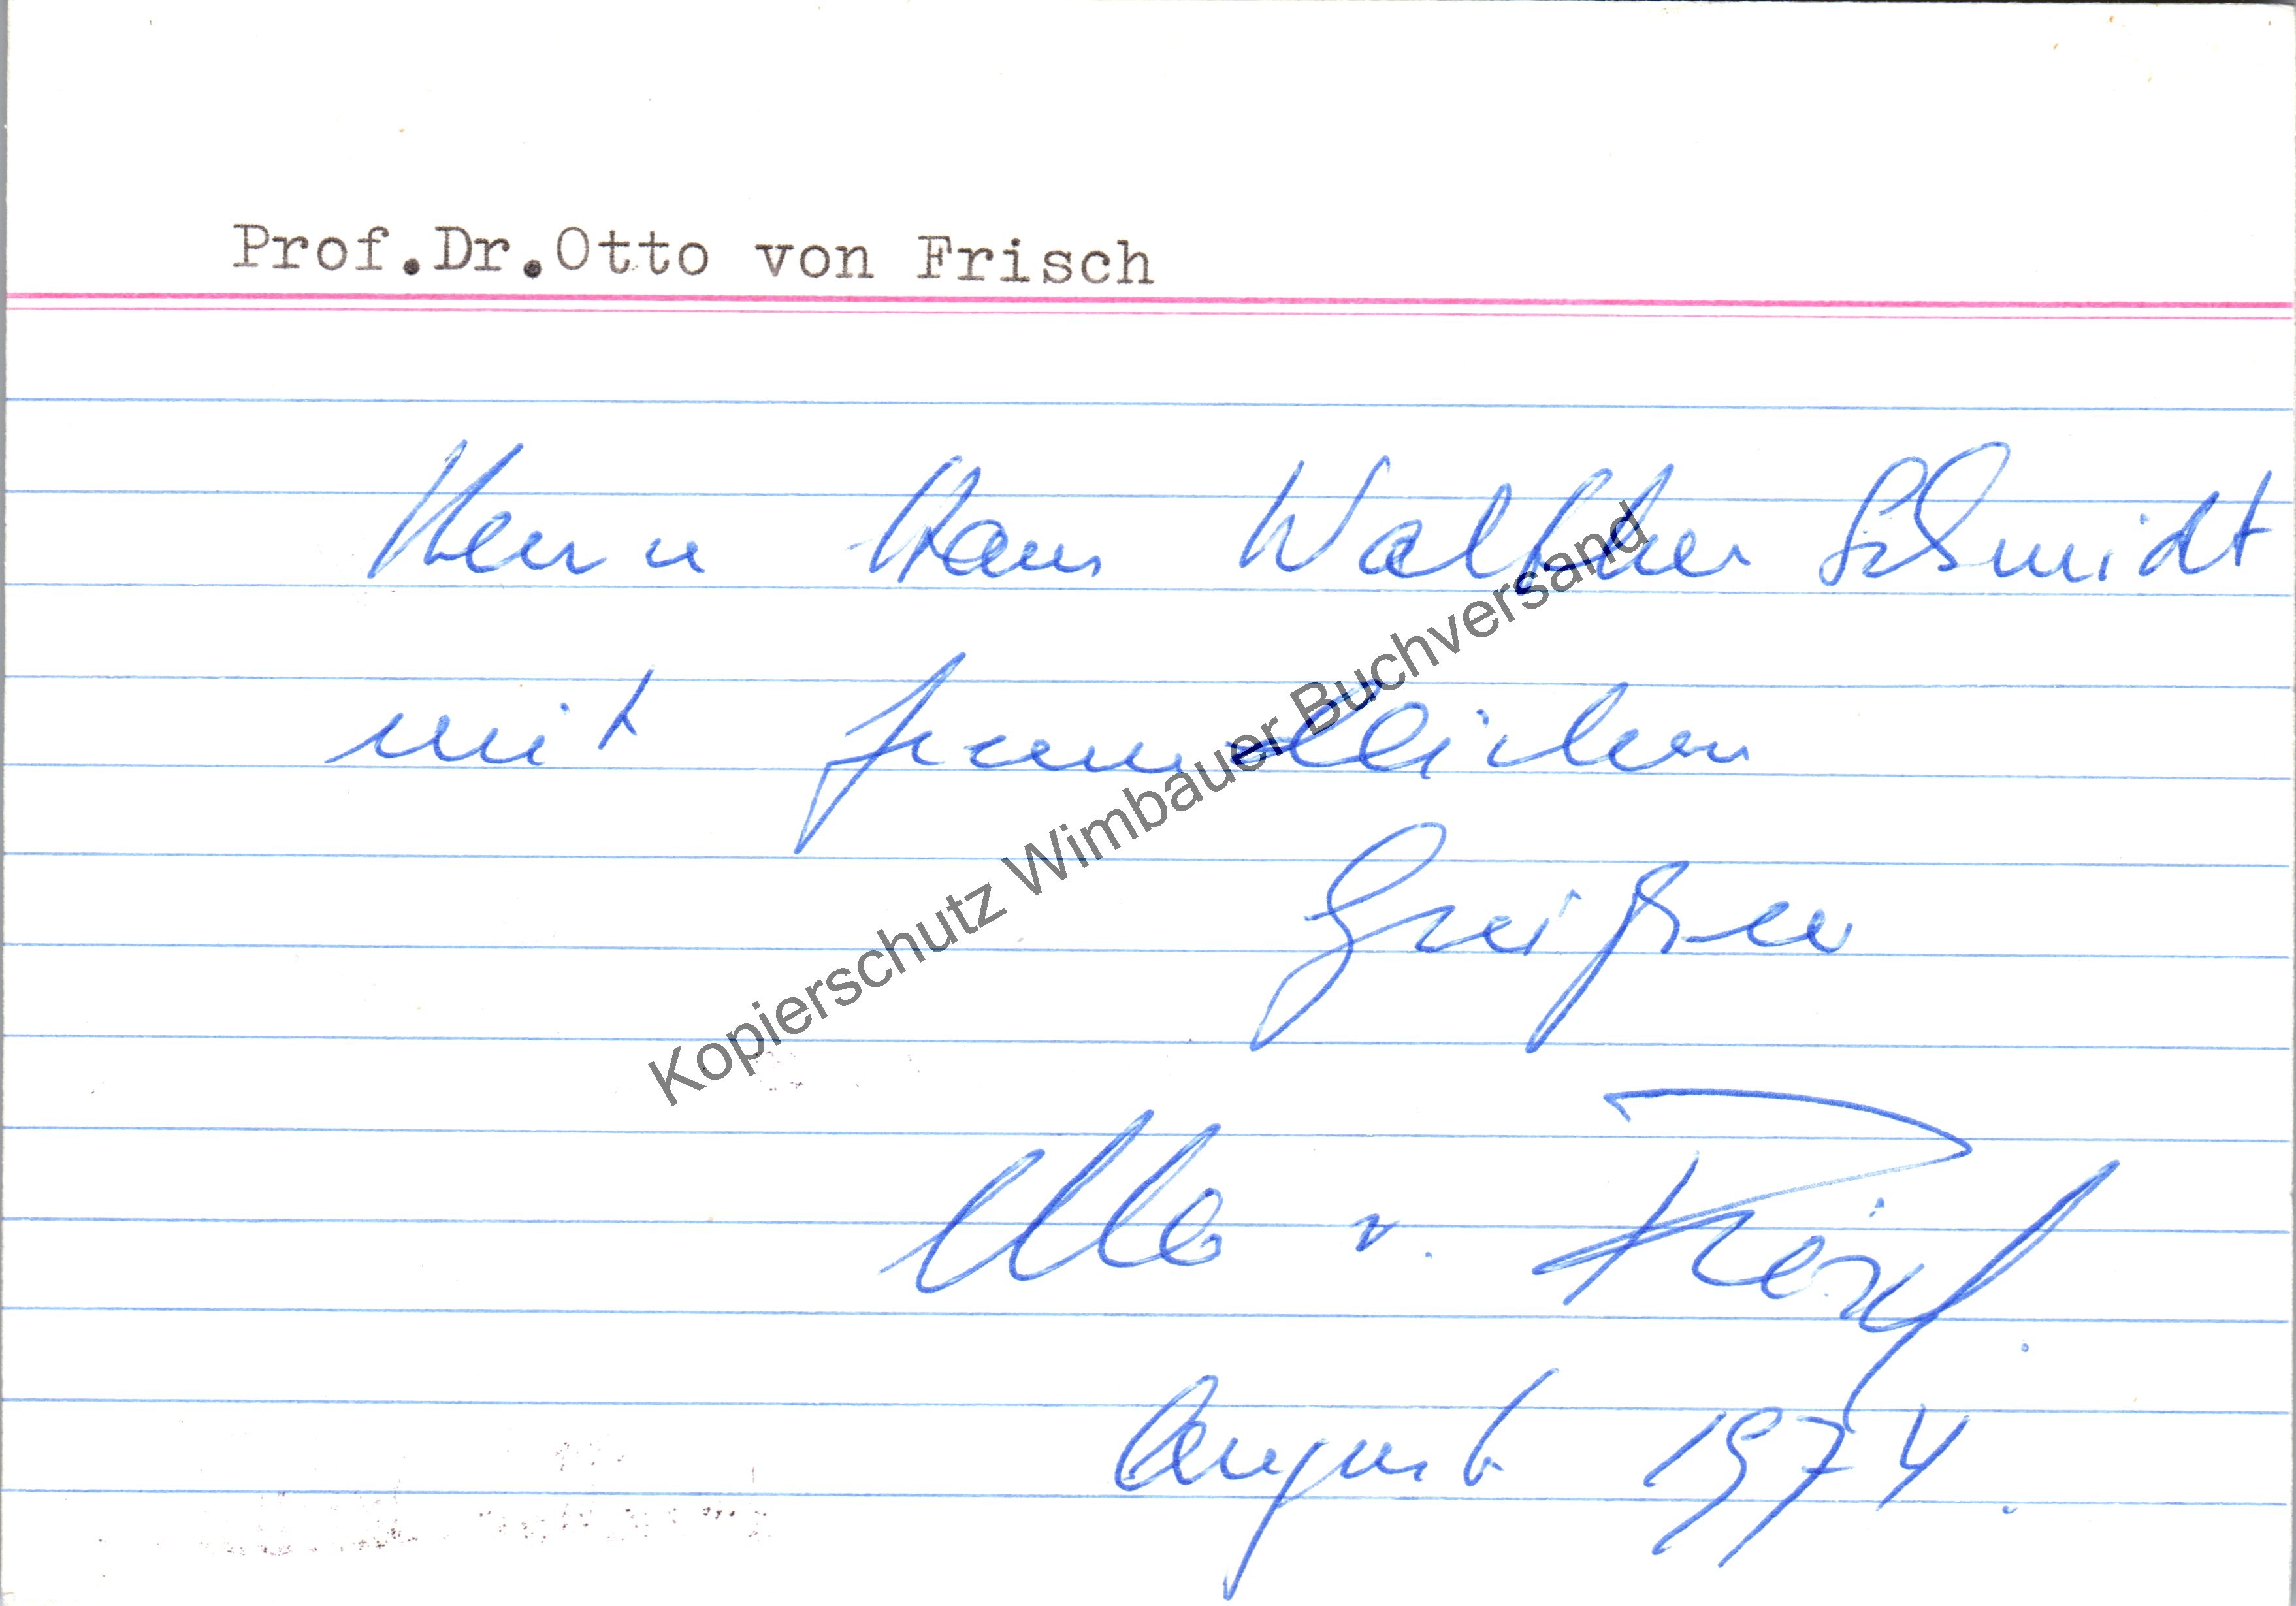 Prof.Dr.Otto von Frisch
Herrn Hans Walther Schmidt
mit freundlichen
Grüßen
Otto v. Frisch.
August 1974.
Kopierschutz Wimbauer Buchversand